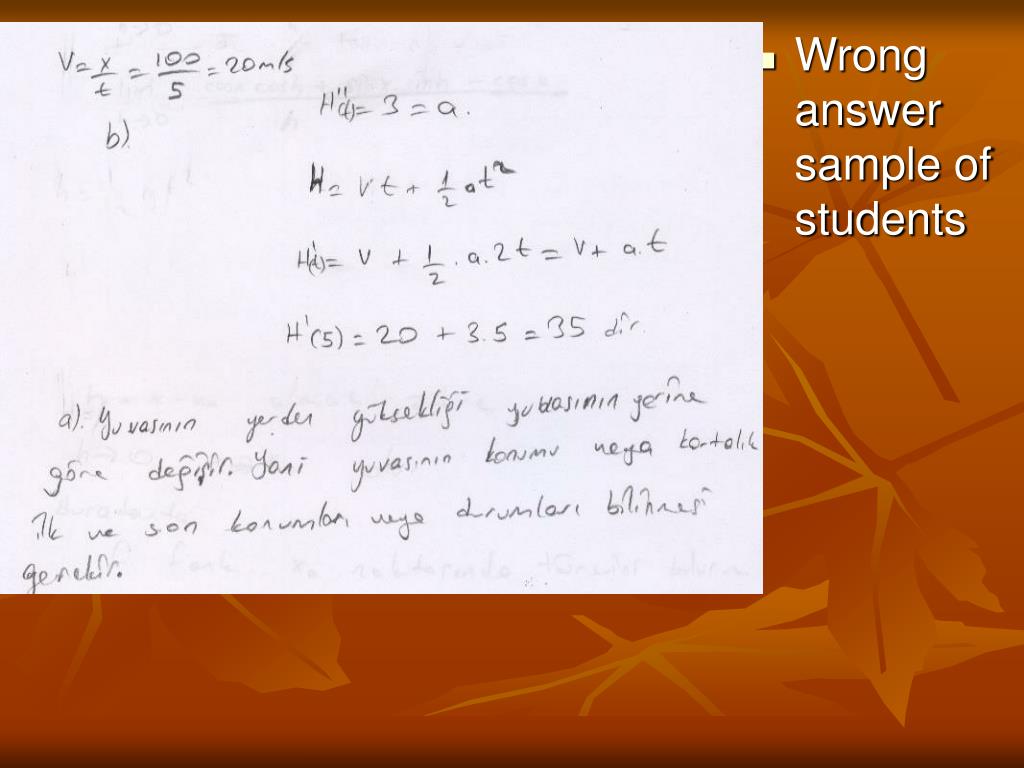 V = x/t = 100/5 = 20 m/s
H''(t) = 3 = a.
b)
H = Vt + 1/2 at²
H'(t) = V + 1/2 . a. 2t = V + a.t
H'(5) = 20 + 3.5 = 35 dir.
a). Yuvasının yerden yüksekliği yuvasının yerine
göre değişir. Yani yuvasının konumu veya kartalık
ilk ve son konumları veya durumları bilinmesi
gerekir.
Wrong
answer
sample of
students